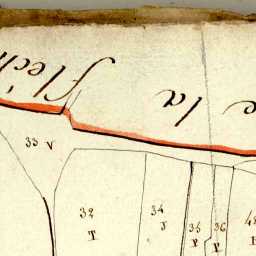 e la flech
33 v
32 T
34 J
35 v
36 v